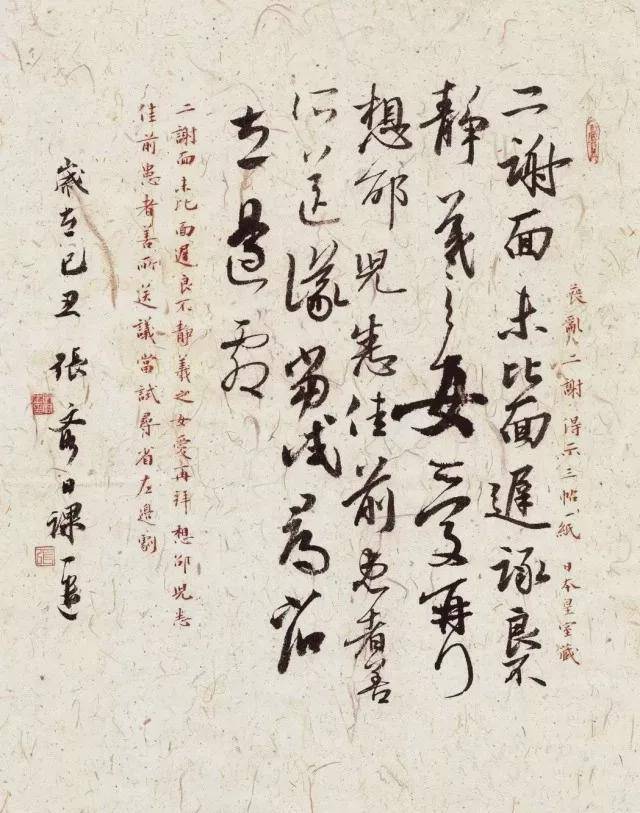 喪亂二謝得示三帖一紙 日本皇室藏
二謝面未比面遲詠良不
靜羲之女愛再拜
想邵兒悉佳前患者善
所送議當試尋省
左邊
二謝面未比面遲良不靜羲之女愛再拜想邵兒悉
佳前患者善所送議當試尋省左邊劇
歲在己丑張日課一過